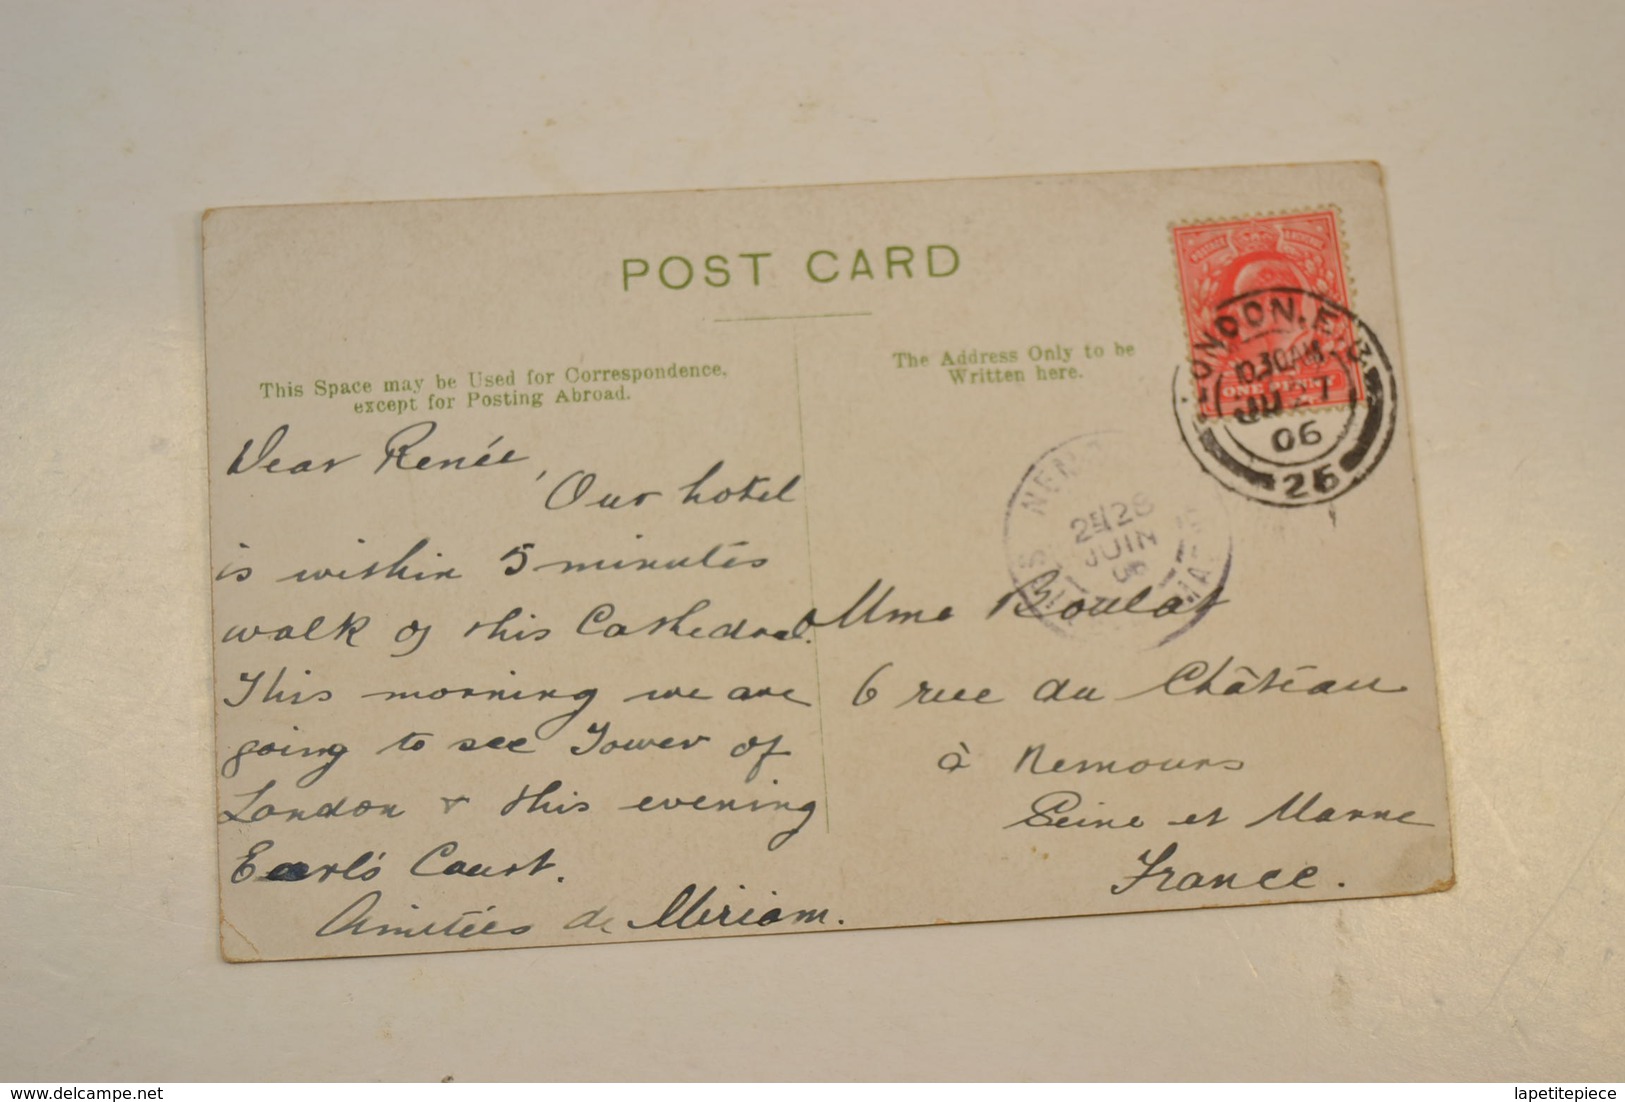 POST CARD
This Space may be Used for Correspondence,
except for Posting Abroad.
The Address Only to be
Written here.
POSTAGE
ONE PENNY
LONDON. E.C.
10.30AM
JU 27
06
26
NEM
28
JUIN
06
Dear Renée,
Our hotel
is within 5 minutes
walk of this Cathedral.
This morning we are
going to see Tower of
London & this evening
Earl's Court.
Amitiées de Miriam.
Mme Boulat
6 rue du Château
à Nemours
Seine et Marne
France.
delcampe.net
lapetitepiece